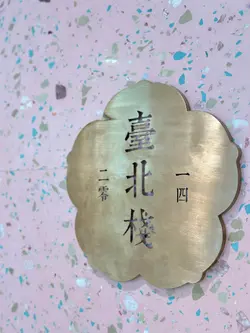 臺北棧
二零
一四